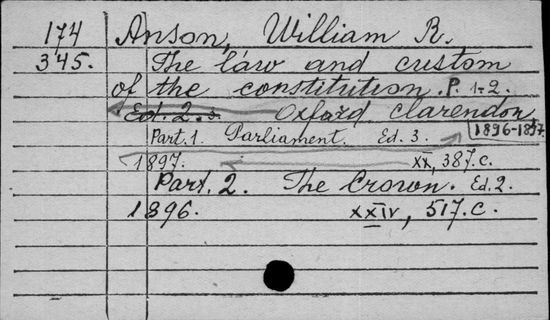 174 Anson, William R.
345. The law and custom
of the constitution. P. 1-2.
Ed. 2. 3. Oxford Clarendon
1896-1897.
Part. 1. Parliament. Ed. 3.
1897. XX, 387. c.
Part. 2. The Crown. Ed. 2.
1896. XXIV, 517. c.